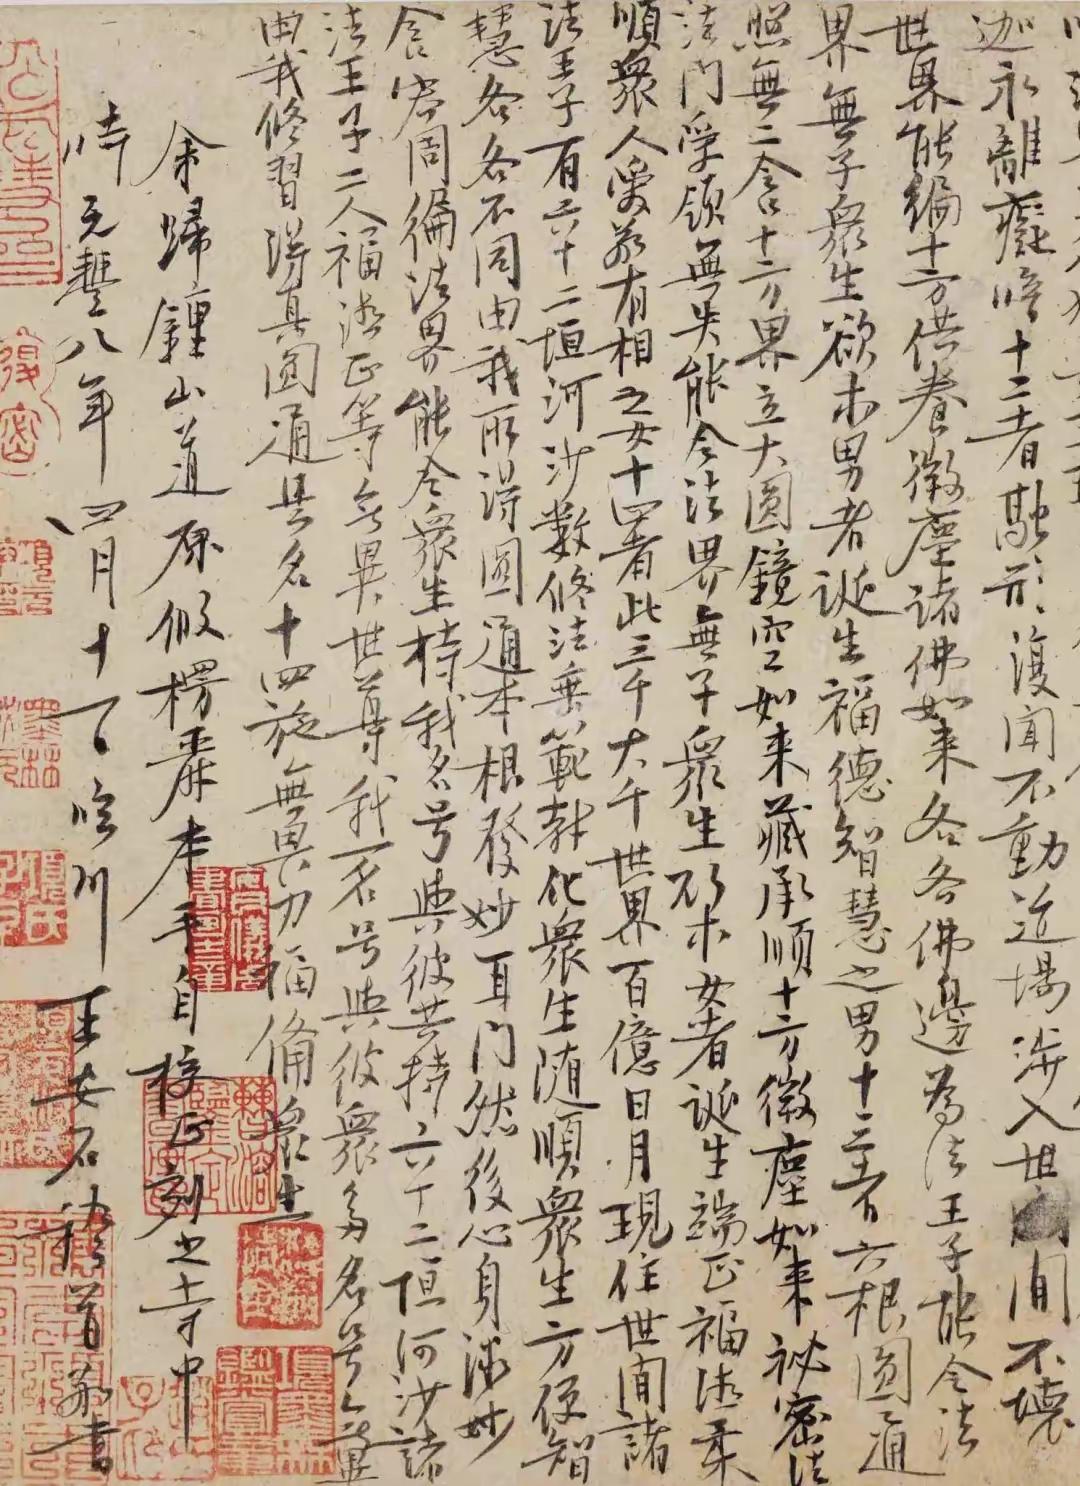 迦永離癡暗十二者融形復闻不動道場涉入世間不壞
世界能徧十方供養微塵諸佛如来各各佛邊為法王子能令法
界無子衆生欲求男者誕生福德智慧之男十三者六根圓通
照無二含十方界立大圓鏡空如来藏承順十方微塵如来祕密法
法門受領無失能令法界無子衆生欲求女者誕生端正福德柔
順衆人愛敬有相之女十四者此三千大千世界百億日月現住世间諸
法王子有六十二恒河沙數修法垂範教化衆生随順衆生方便智
慧各各不同由我所得圓通本根發妙耳門然後心身微妙
含容周徧法界能令衆生持我名号與彼共持六十二恒河沙諸
法王子二人福德正等無異世尊我一名号與彼衆多名号無異
由我修習得真圓通是名十四施無畏力福備衆生
余歸鍾山道原假楞嚴本手自校正刻之寺中
時元豐八年四月十一日臨川王安石稽首敬書